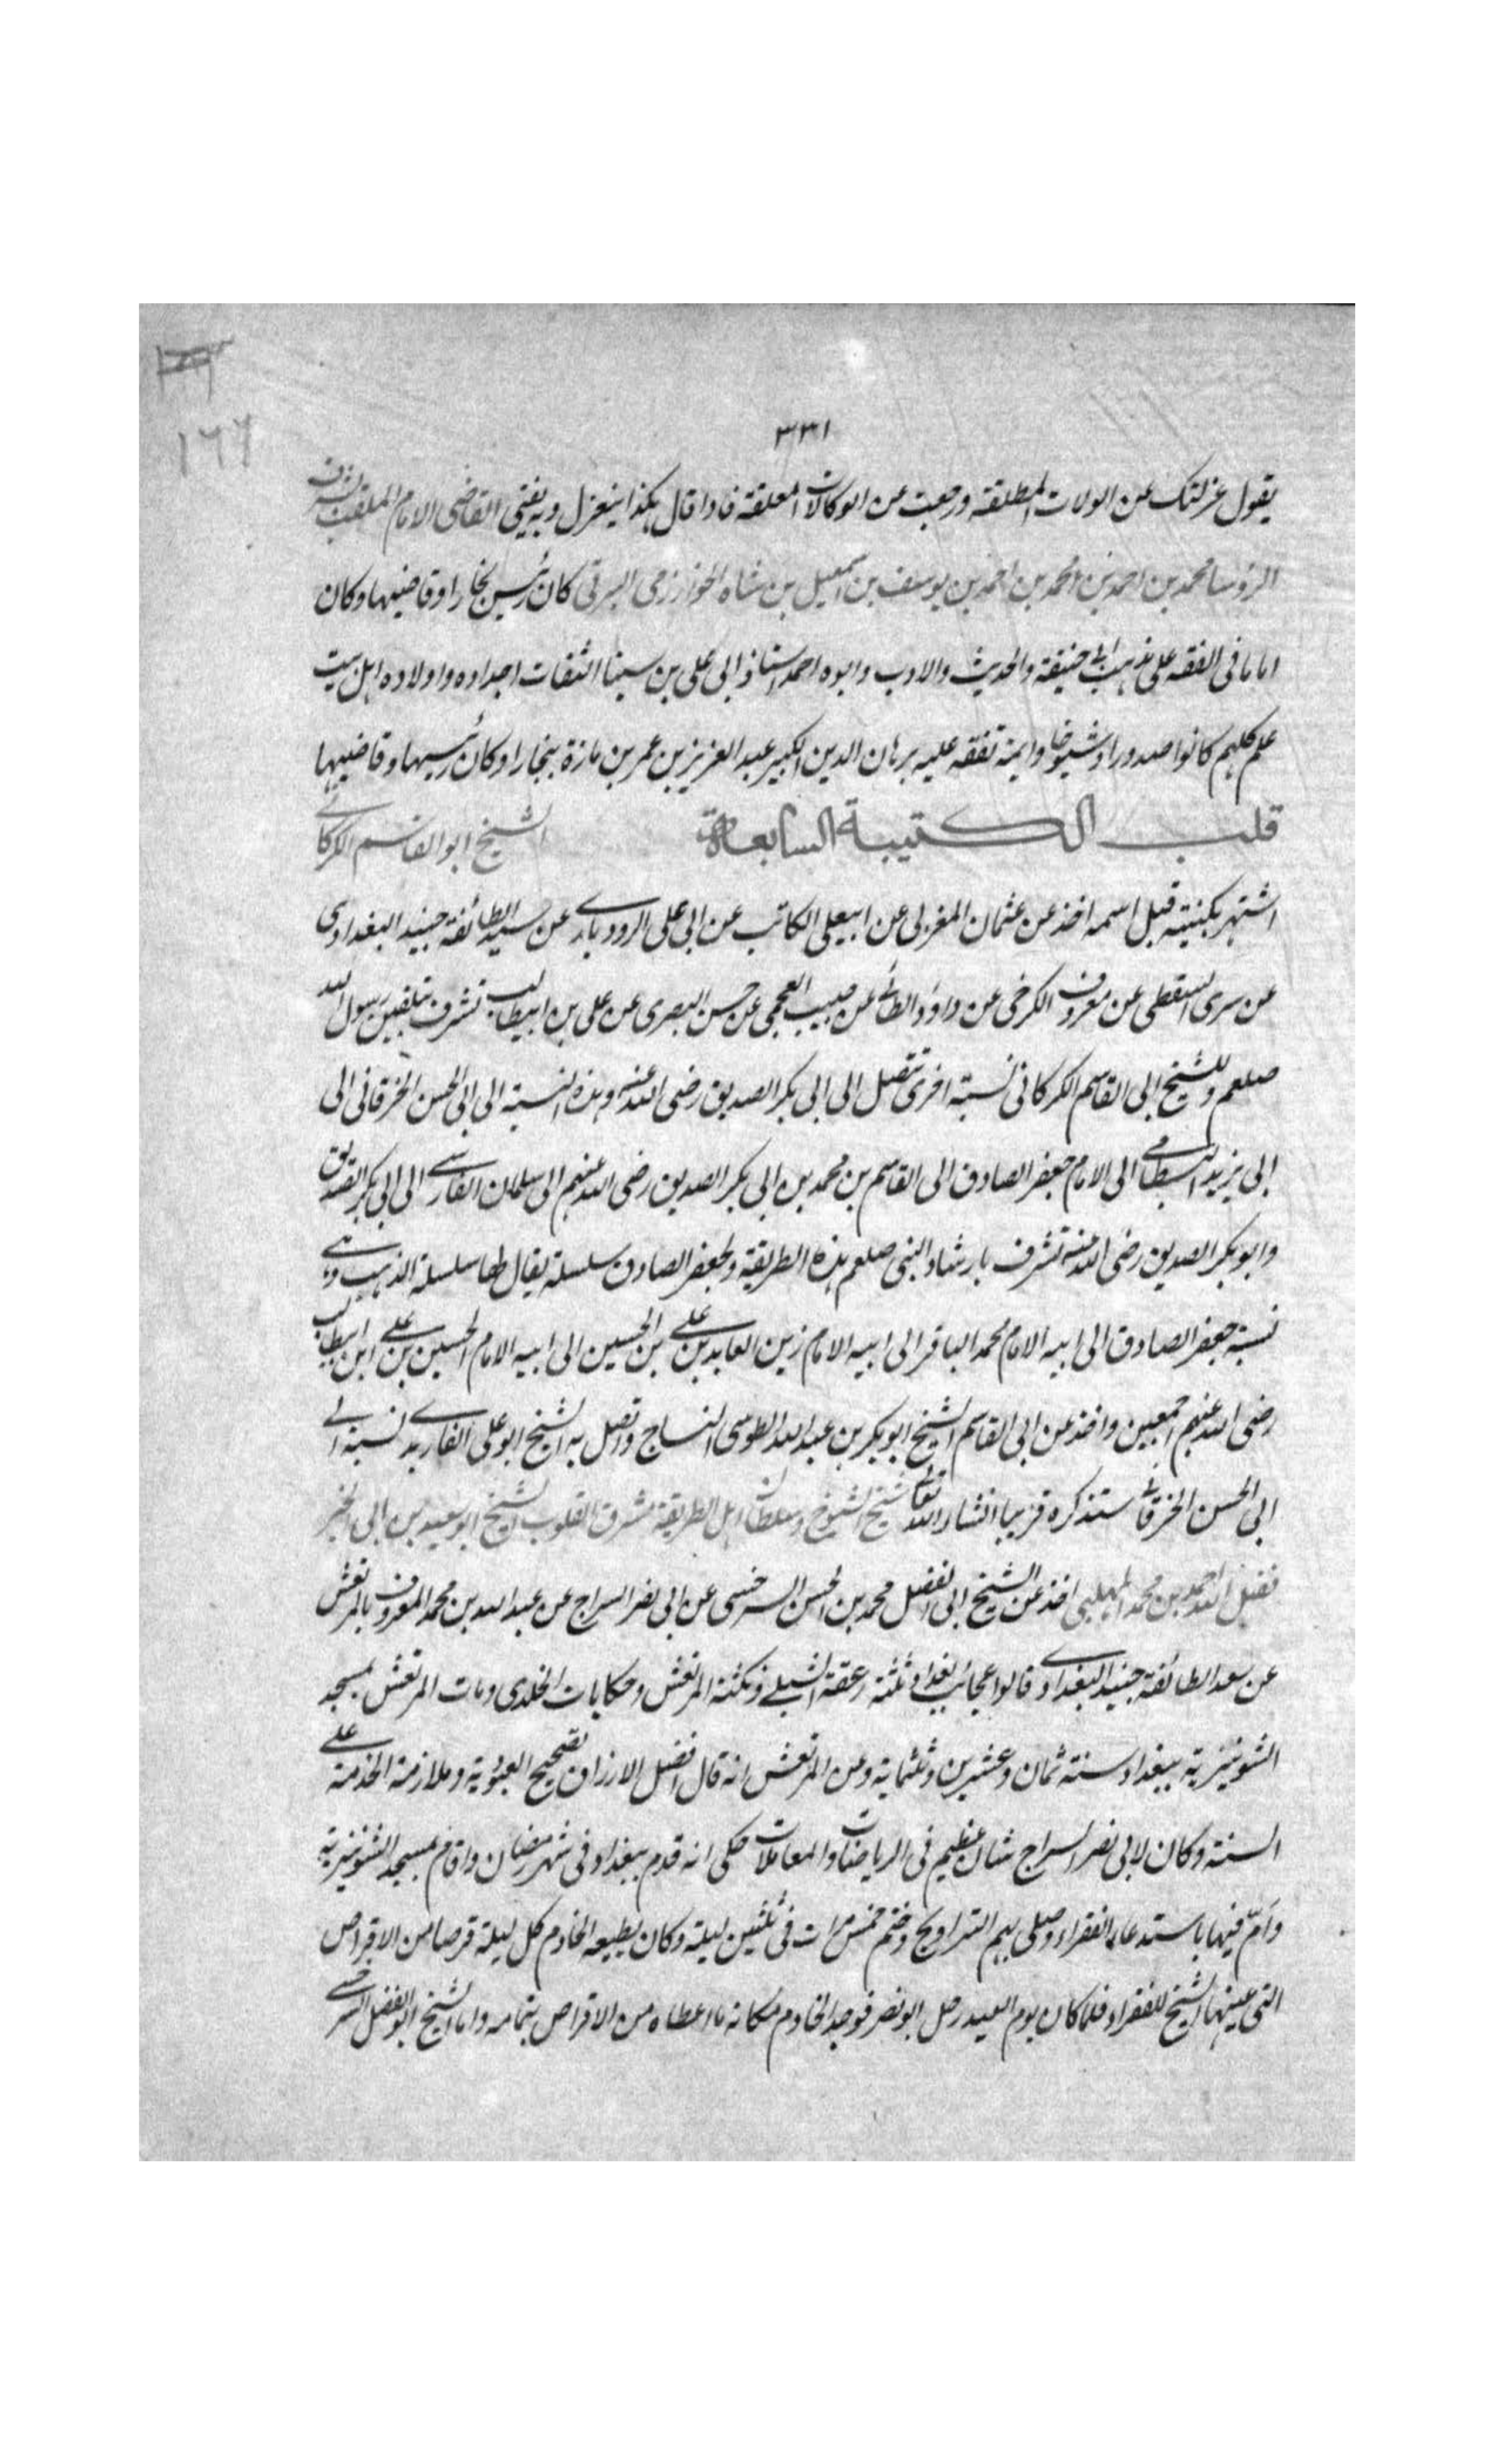 ١٦٦
٣٣١
يقول عزلتك عن الولات المطلقة ورجعت عن الوكالات المعلقة فاذا قال هكذا ينعزل وبه يفتى القاضى الامام الملقب بشرف
الرؤسا محمد بن احمد بن محمد بن احمد بن يوسف بن اسمعيل بن شاه الخوارزمى البرقى كان رئيس بخارا وقاضيها وكان
اماما فى الفقه على مذهب ابى حنيفة والحديث والادب وابوه احمد استاذ ابى على بن سينا الثقات اجداده واولاده اهل بيت
علم كلهم كانوا صدورا وشيوخا وايمة تفقه عليه برهان الدين الكبير عبد العزيز بن عمر بن مازة ببخارا وكان رئيسها وقاضيها
قلب الكتيبة السابعة الشيخ ابو القاسم الكركانى
اشتهر بكنيته قبل اسمه اخذ عن عثمان المغربى عن ابيعلى الكاتب عن ابى على الرودبارى عن سيد الطائفة جنيد البغدادى
عن سرى السقطى عن معروف الكرخى عن داود الطائى عن حبيب العجمى عن حسن البصرى عن على بن ابيطالب تشرف بتلقين رسول الله
صلعم وللشيخ ابى القاسم الكركانى نسبة اخرى تتصل الى ابى بكر الصديق رضى الله عنه وهذه النسبة الى ابى الحسن الخرقانى الى
ابى يزيد البسطامى الى الامام جعفر الصادق الى القاسم بن محمد بن ابى بكر الصديق رضى الله عنهم الى سلمان الفارسى الى ابى بكر الصديق
وابو بكر الصديق رضى الله عنه تشرف بارشاد النبى صلعم بهذه الطريقة ولجعفر الصادق سلسلة يقال لها سلسلة الذهب وهى
نسبة جعفر الصادق الى ابيه الامام محمد الباقر الى ابيه الامام زين العابدين على بن الحسين الى ابيه الامام الحسين بن على ابن ابيطالب
رضى الله عنهم اجمعين واخذ عن ابى القاسم الشيخ ابو بكر بن عبد الله الطوسى النساج واتصل به الشيخ ابو على الفارمدى نسبة الى
ابى الحسن الخرقانى ستذكره قريبا انشاء الله تعالى شيخ الشيوخ وسلطان اهل الطريقة مشرق القلوب الشيخ ابو سعيد بن ابى الخير
فضل الله احمد بن محمد المهلبى اخذ عن الشيخ ابى الفضل محمد بن الحسن السرخسى عن ابى نصر السراج عن عبد الله بن محمد المعروف بالمرتعش
عن سعد الطائفة جنيد البغدادى قالوا عجائب بغداد ثلثة زعقة الشبلى ونكتة المرتعش وحكايات الخلدى ومات المرتعش بمسجد
الشونيزية ببغداد سنة ثمان وعشرين وثلثماية وعن المرتعش انه قال افضل الارزاق تصحيح العبودية وملازمة الخدمة على
السنة وكان لابى نصر السراج شان عظيم فى الرياضات والمعاملات حكى انه قدم ببغداد فى شهر رمضان واقام بمسجد الشونيزية
وامّ فيها باستدعاء الفقراء وصلى بهم التراويح وختم خمس مرات فى ثلثين ليلة وكان يطيعه الخادم كل ليلة قرصا من الاقراص
التى عينها الشيخ للفقراء فلما كان يوم العيد رحل ابو نصر فوجد الخادم مكانه ما اعطاه من الاقراص بتمامه واما الشيخ ابو الفضل السرخسى